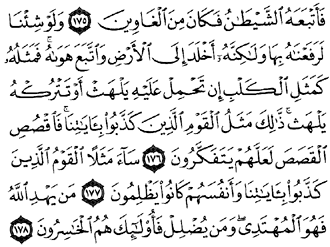 فَأَتْبَعَهُ ٱلشَّيْطَٰنُ فَكَانَ مِنَ ٱلْغَاوِينَ ١٧٥ وَلَوْ شِئْنَا
لَرَفَعْنَٰهُ بِهَا وَلَٰكِنَّهُۥٓ أَخْلَدَ إِلَى ٱلْأَرْضِ وَٱتَّبَعَ هَوَىٰهُ ۚ فَمَثَلُهُۥ
كَمَثَلِ ٱلْكَلْبِ إِن تَحْمِلْ عَلَيْهِ يَلْهَثْ أَوْ تَتْرُكْهُ
يَلْهَث ۚ ذَّٰلِكَ مَثَلُ ٱلْقَوْمِ ٱلَّذِينَ كَذَّبُوا۟ بِـَٔايَٰتِنَا ۚ فَٱقْصُصِ
ٱلْقَصَصَ لَعَلَّهُمْ يَتَفَكَّرُونَ ١٧٦ سَآءَ مَثَلًا ٱلْقَوْمُ ٱلَّذِينَ
كَذَّبُوا۟ بِـَٔايَٰتِنَا وَأَنفُسَهُمْ كَانُوا۟ يَظْلِمُونَ ١٧٧ مَن يَهْدِ ٱللَّهُ
فَهُوَ ٱلْمُهْتَدِى ۖ وَمَن يُضْلِلْ فَأُو۟لَٰٓئِكَ هُمُ ٱلْخَٰسِرُونَ ١٧٨